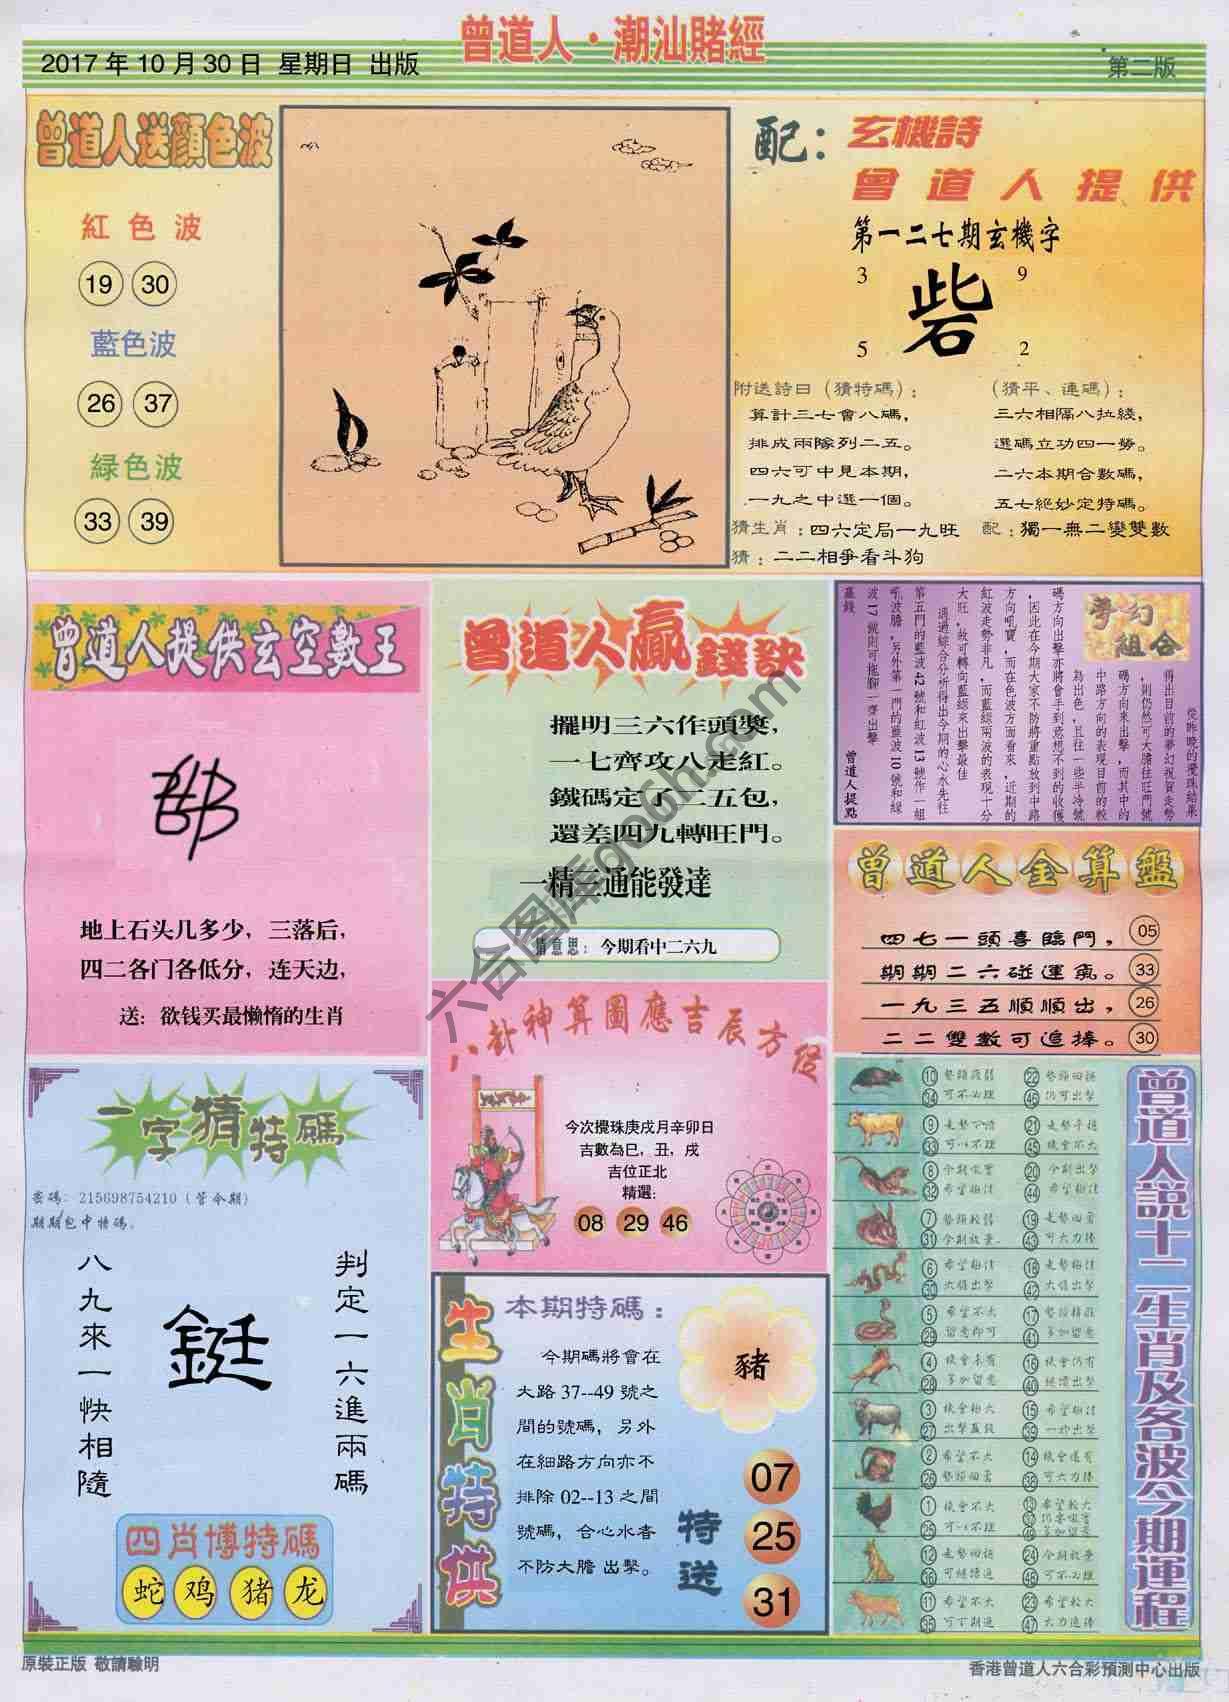 曾道人·潮汕賭經
2017年10月30日 星期日 出版
第二版
曾道人送顏色波
紅色波
19 30
藍色波
26 37
緑色波
33 39
配：玄機詩
曾道人提供
第一二七期玄機字
3 9
砦
5 2
附送詩曰（猜特碼）：
算計三七會八碼，
排成兩隊列二五。
四六可中見本期，
一九之中選一個。
（猜平、連碼）：
三六相隔八拉綫，
選碼立功四一勞。
二六本期合數碼，
五七絕妙定特碼。
猜生肖：四六定局一九旺
配：獨一無二變雙數
猜：二二相爭看斗狗
曾道人提供玄空數王
地上石头几多少，三落后，
四二各门各低分，连天边，
送：欲钱买最懒惰的生肖
曾道人贏錢訣
擺明三六作頭獎，
一七齊攻八走紅。
鐵碼定了二五包，
還差四九轉旺門。
一精三通能發達
猜意思：今期看中二六九
夢幻組合
從昨晚的攪珠結果
得出目前的夢幻祝賀走勢
，則仍然可大膽往旺門號
碼方向來出擊，而其中的
中路方向的表現目前的較
為出色，且往一些半冷號
碼方向出擊亦將會手到意想不到的收獲
，因此在今期大家不防將重點放到中路
方向吼寶，而在色波方面看來，近期的
紅波走勢非凡，而藍綜兩波的表現十分
大旺，故可轉向藍綜來出擊最佳
通過綜合分析得出今期的心水先往
第五門的藍波42號和紅波13號作一組
吼波膽，另外第一門的藍波10號和綠
波17號則可拖腳一齊出擊
贏錢
曾道人提點
曾道人金算盤
四七一頭喜臨門， 05
期期二六碰運氣。 33
一九三五順順出， 26
二二雙數可追捧。 30
八卦神算圖應吉辰方位
今次攪珠庚戌月辛卯日
吉數為巳，丑，戌
吉位正北
精選：
08 29 46
一字猜特碼
密碼：215698754210（管今期）
期期包中特碼。
判定一六進兩碼
鋌
八九來一快相隨
四肖博特碼
蛇 鸡 猪 龙
生肖特供
本期特碼：
今期碼將會在
大路37--49號之
間的號碼，另外
在細路方向亦不
排除02--13之間
號碼，合心水者
不防大膽出擊。
豬
特送
07
25
31
曾道人説十二生肖及各波今期運程
10 34 22 46
9 33 21 45
8 32 20 44
7 31 19 43
6 30 18 42
5 29 17 41
4 28 16 40
3 27 15 39
2 26 14 38
1 25 13 37 49
12 36 24 48
11 35 23 47
原裝正版 敬請驗明
香港曾道人六合彩預測中心出版
六合图库qqdh.com